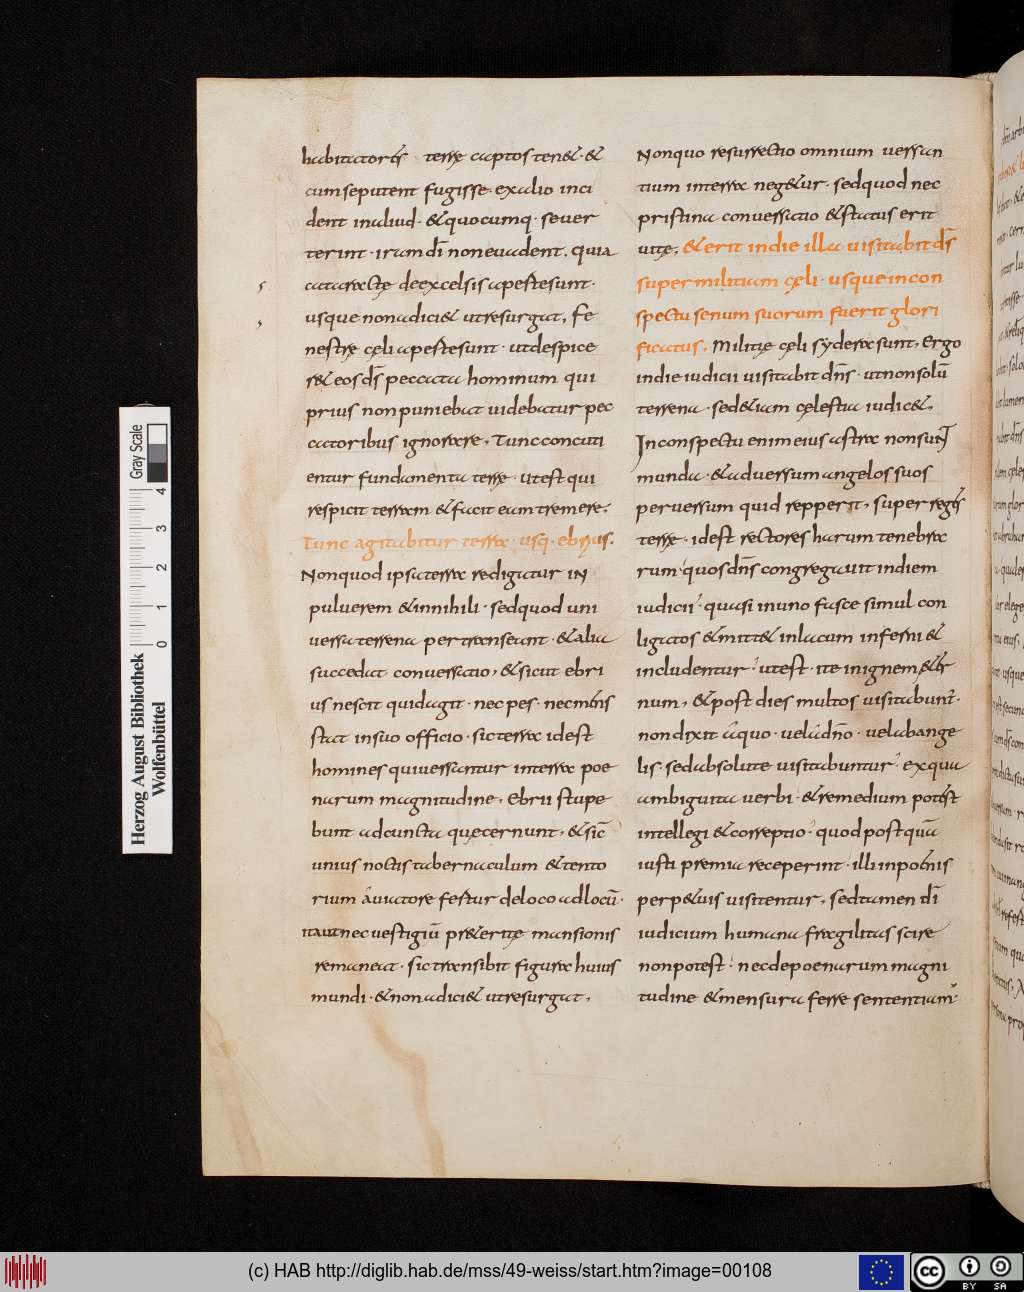 habitatoris terre captos tenet · et
cum se putent fugisse · ex alio inci
dent in aliud · et quocumq · se uer
terint · iram dī non euadent, quia
cataracte de excelsis apeste sunt ·
usque non adiciet ut resurgat, fe
nestrę cęli apeste sunt · ut despice
ret eos dš peccata hominum qui
prius non puniebat uidebatur pec
catoribus ignorare, Tunc concuti
entur fundamenta terre · ut est qui
respicit terram et facit eam tremere;
Tunc agitabitur terra · usq · ebrius.
Non quod ipsa terra redigatur in
puluerem et in nihili · sed quod uni
uersa terrena per transeant · et alia
succedat conuersatio, et sicut ebri
us nescit quid agit · nec pes · nec
stat in suo officio · sic terra id est
homines qui uersantur in terra poe
narum magnitudine, Ebrii stupe
bunt ad cuncta quę cernunt, et sic
unius noctis tabernaculum et tento
rium a uiatore festur de loco ad locū ·
ita ut nec uestigiū preteritę mansionis
remaneat · sic transibit figura huius
mundi · et non adiciet ut resurgat,
Non quo resurrectio omnium uersan
tium in terra negetur · sed quod nec
pristina conuersatio et status erit
uitę, et erit in die illa uisitabit dš
super militiam cęli · usque in con
spectu senum suorum fuerit glori
ficatus. Militię cęli sydera sunt, Ergo
in die iudicii uisitabit dn̄s · ut non solū
terrena · sed etiam cęlestia iudicet,
In conspectu enim eius astra non sunt
munda · et aduersum angelos suos
peruersum quid repperit, super regis
terre · id est rectores harum tenebra
rum · quos dn̄s congregauit in diem
iudicii · quasi in uno fasce simul con
ligatos et mittet in lacum inferni et
includentur · ut est · ite in ignem
num, et post dies multos uisitabunt ·
non dixit a quo · uel a dn̄o · uel ab ange
lis · sed absolute uisitabuntur · ex qua
ambiguita uerbi · et remedium potest
intellegi et correptio · quod post quā
iusti premia receperint · illi in poenis
perpetuis uisitentur, sed tamen dī
iudicium humana fragilitas scire
non potest · nec de poenarum magni
tudine et mensura ferre sententiam ·
Herzog August Bibliothek
Wolfenbüttel
0 1 2 3 4
Gray Scale
(c) HAB http://diglib.hab.de/mss/49-weiss/start.htm?image=00108
cc BY SA